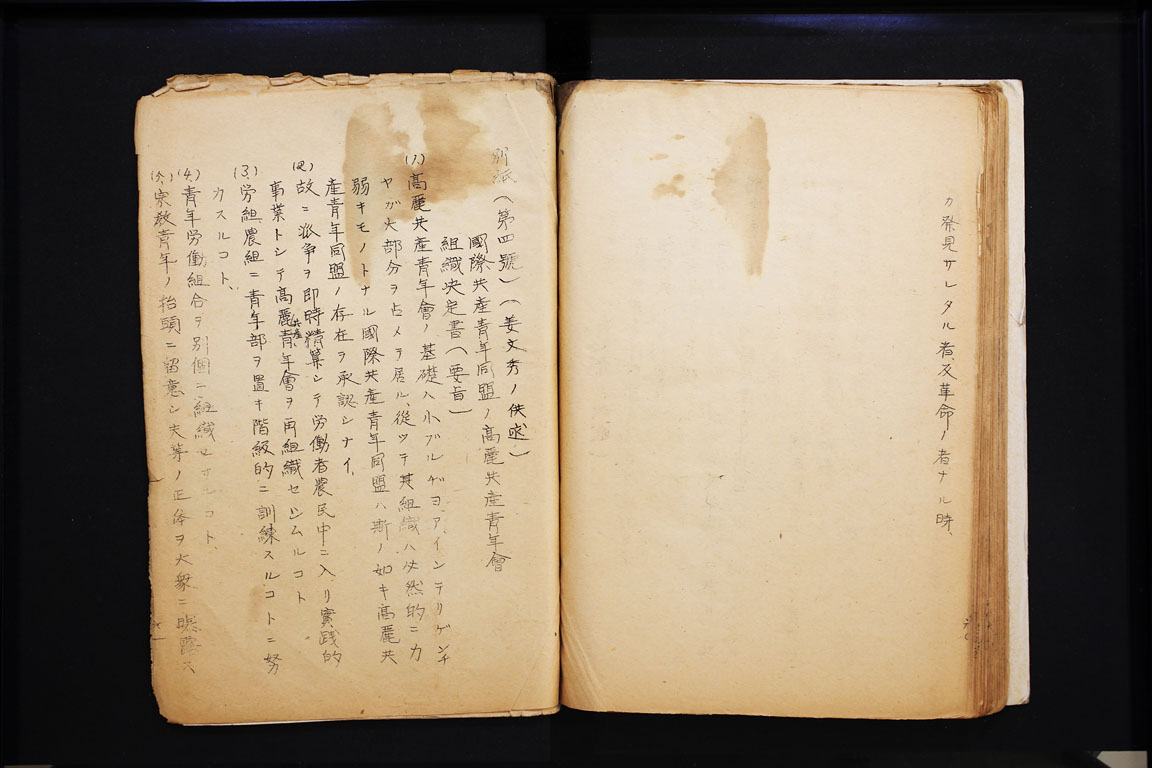 カ発見サレタル者、反革命ノ者ナル時、
別紙(第四號)(姜文秀ノ供述)
國際共産青年同盟ノ高麗共産青年會
組織決定書(要旨)
(1、)高麗共産青年會ノ基礎ハ小ブルヂヨア、インテリゲンチ
ヤガ大部分ヲ占メテ居ル、從ツテ其組織ハ必然的ニ力
弱キモノトナル國際共産青年同盟ハ斯ノ如キ高麗共
産青年同盟ノ存在ヲ承認シナイ、
(2)故ニ派争ヲ即時精算シテ労働者農民中ニ入リ實践的
事業トシテ高麗共産青年會ヲ再組織セシムルコト
(3、)労組農組ニ青年部ヲ置キ階級的ニ訓練スルコトニ努
力スルコト、
(4、)青年労働組合ヲ別個ニ組織セザルコト、
宗教青年ノ抬頭ニ留意シ夫等ノ正体ヲ大衆ニ曝露ス